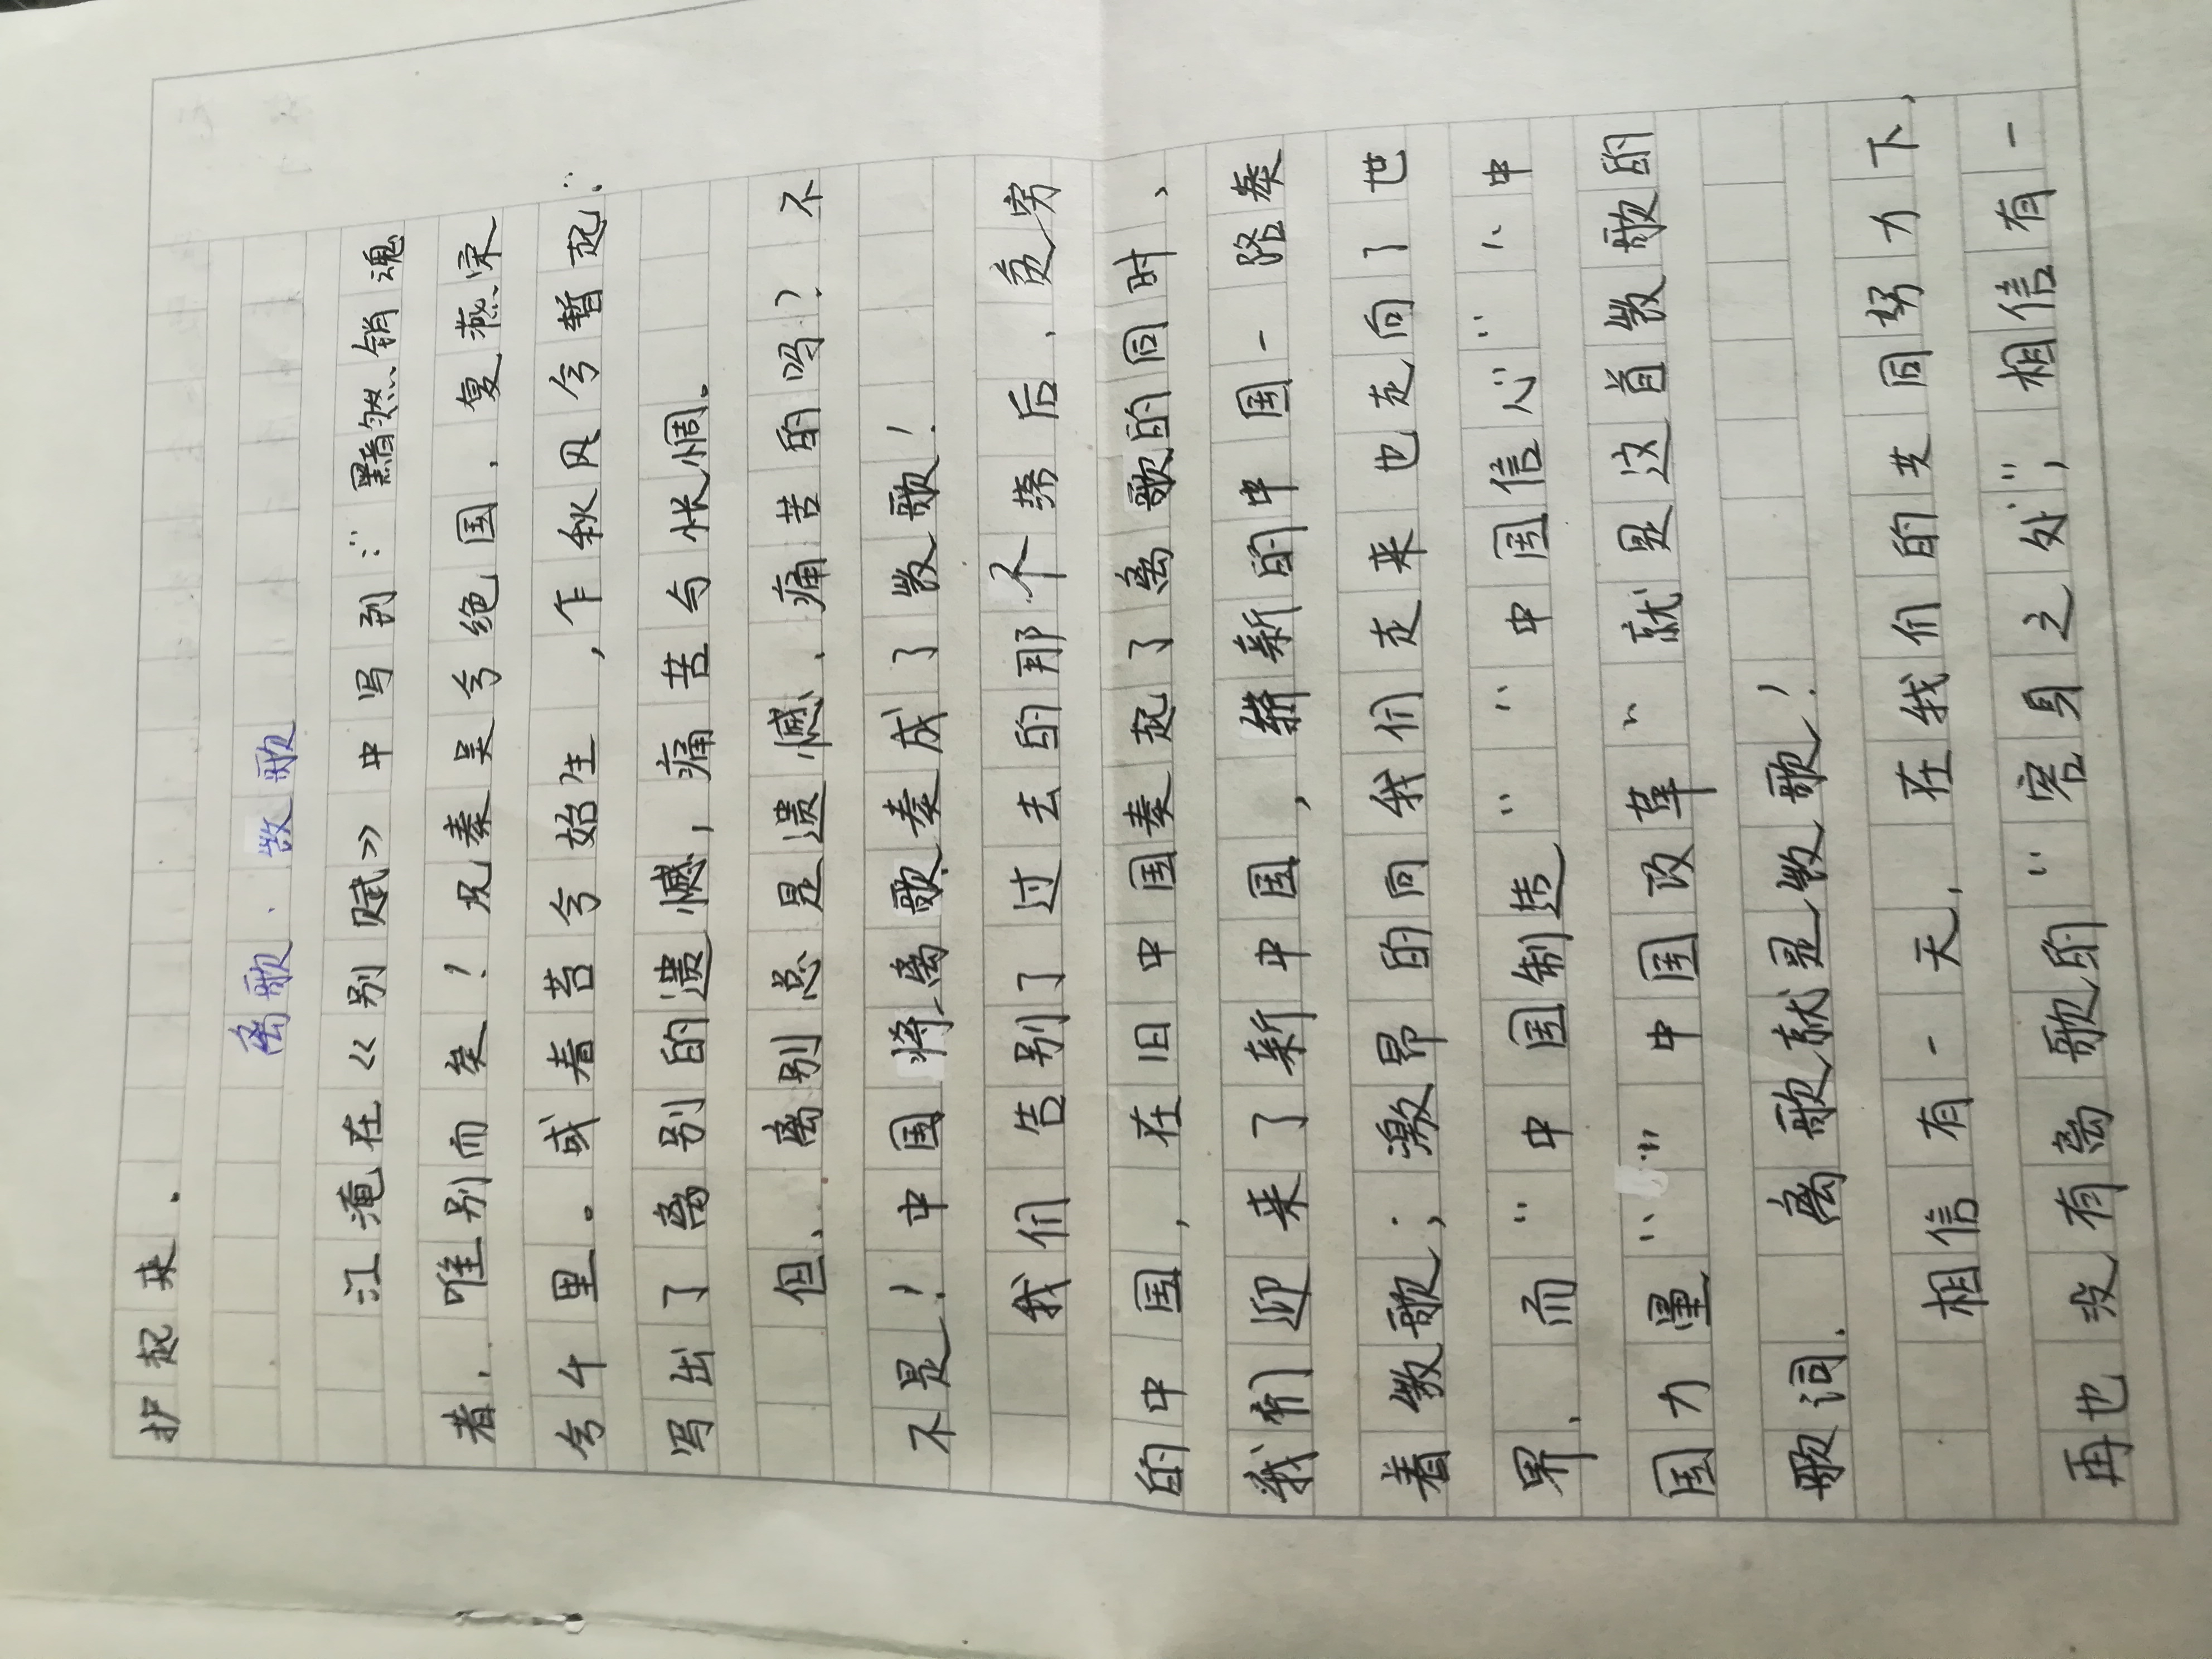 护起来.
离歌、欢歌
江淹在《别赋》中写到:“黯然销魂
者,唯别而矣!况秦吴兮绝国,复燕宋
兮千里。或春苔兮始生,乍秋风兮暂起.”
写出了离别的遗憾,痛苦与怅惆。
但、离别总是遗憾、痛苦的吗?不
不是!中国将离歌奏成了欢歌!
我们告别了过去的那个落后、贫穷
的中国,在旧中国奏起了离歌的同时、
我们迎来了新中国,崭新的中国一路奏
着欢歌;激昂的向我们走来也走向了世
界、而“中国制造”“中国信心”“中
国力量”“中国改革”就是这首欢歌的
歌词. 离歌就是欢歌!
相信有一天,在我们的共同努力下,
再也没有离歌的“容身之处”;相信有一